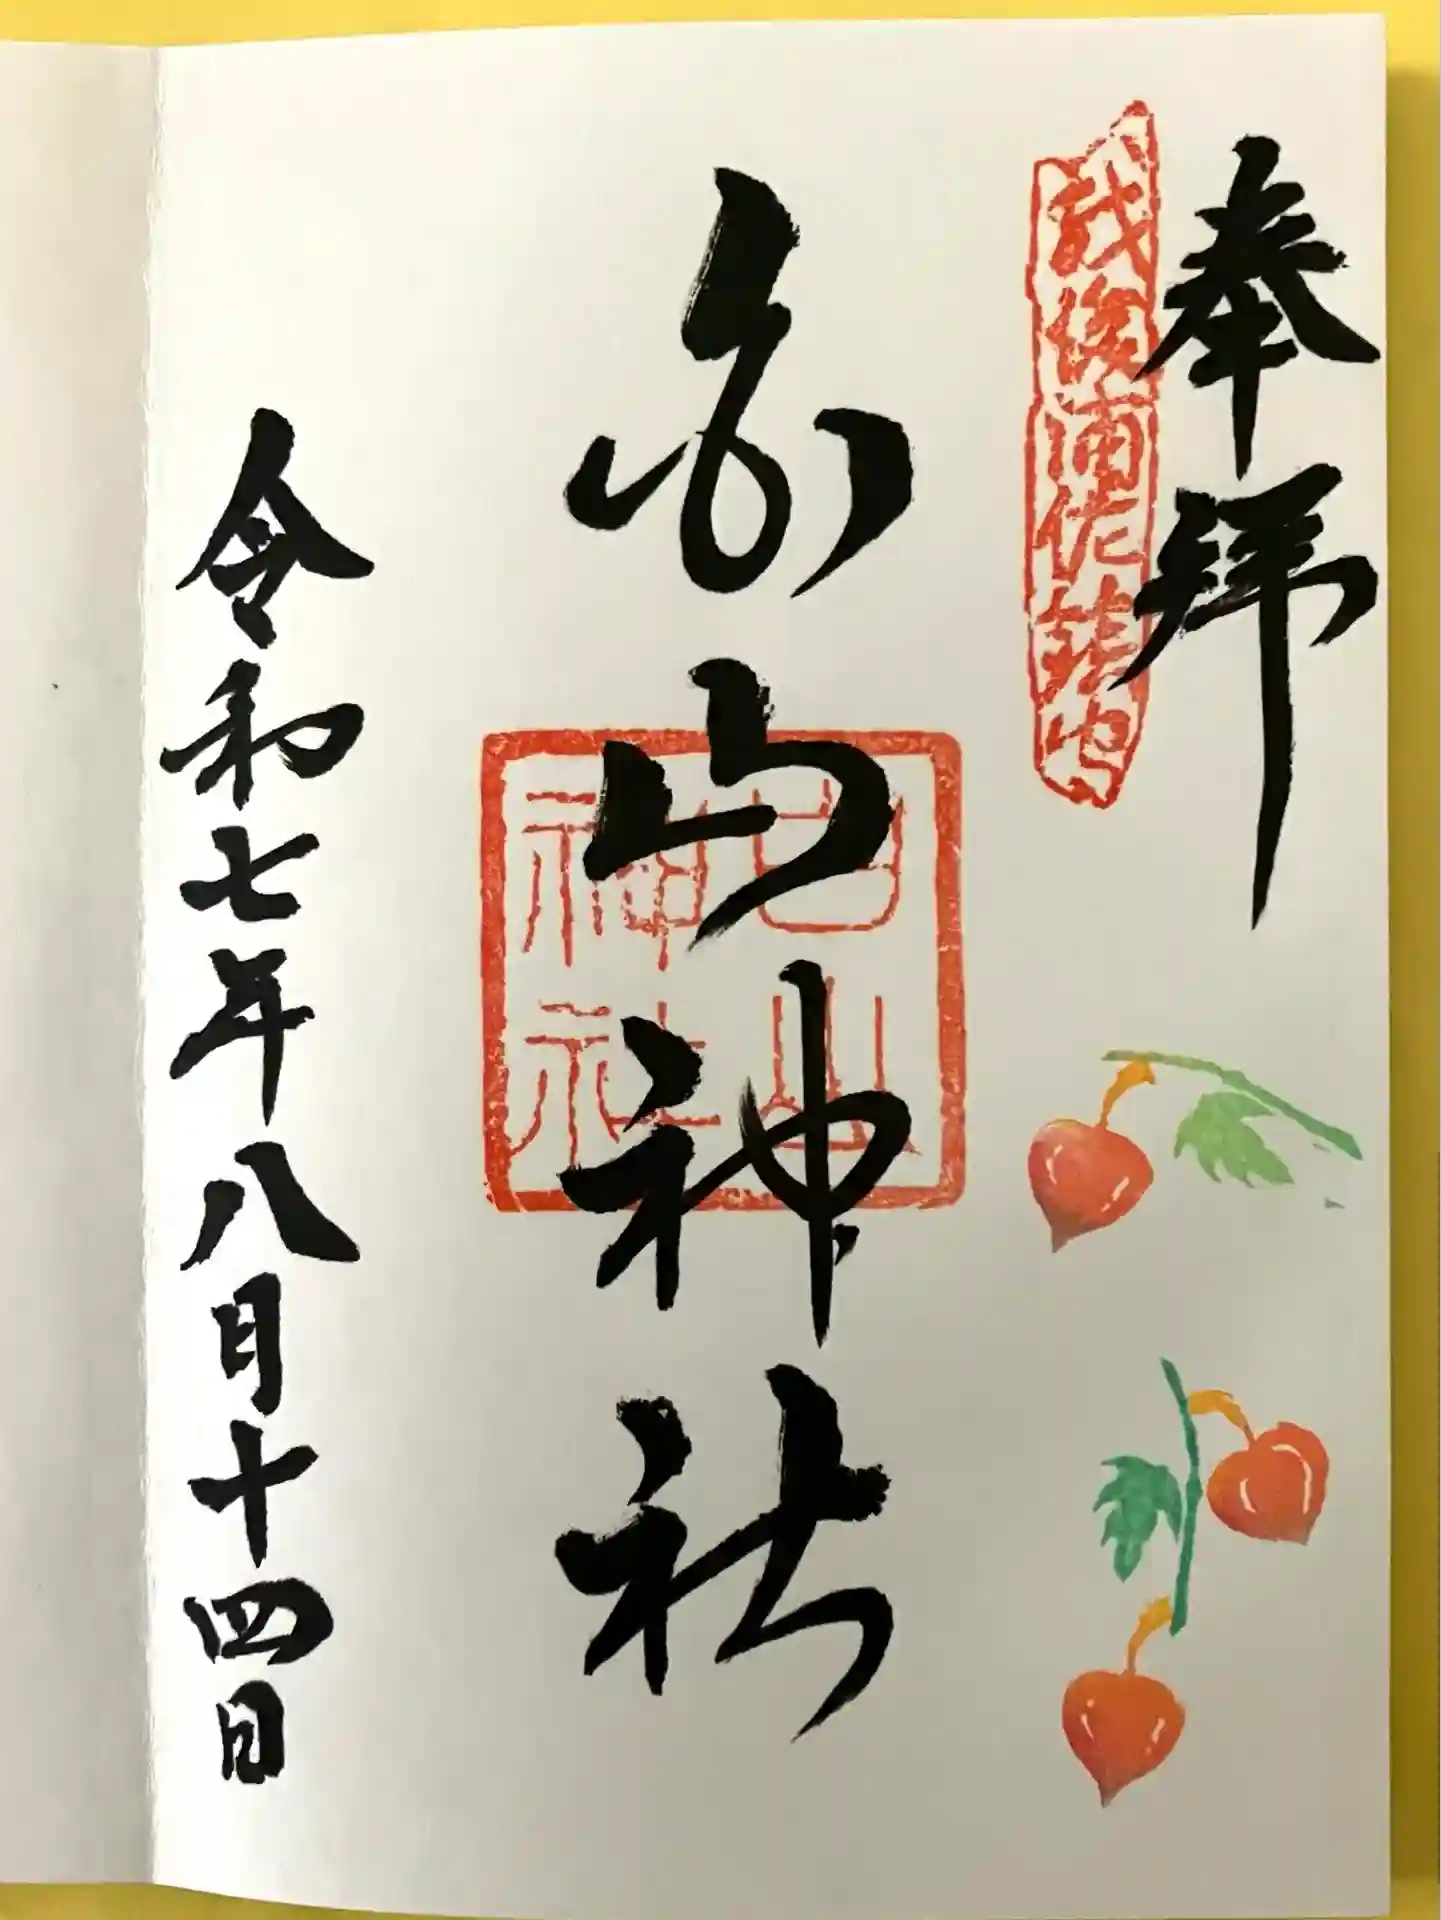 奉拝
越後浦佐
白山神社
白山
神社
令和七年八月十四日